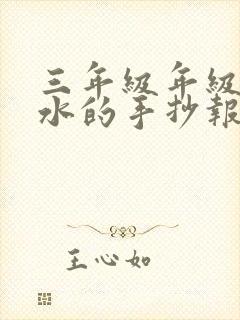 三年級年級
水的手抄報
王心如